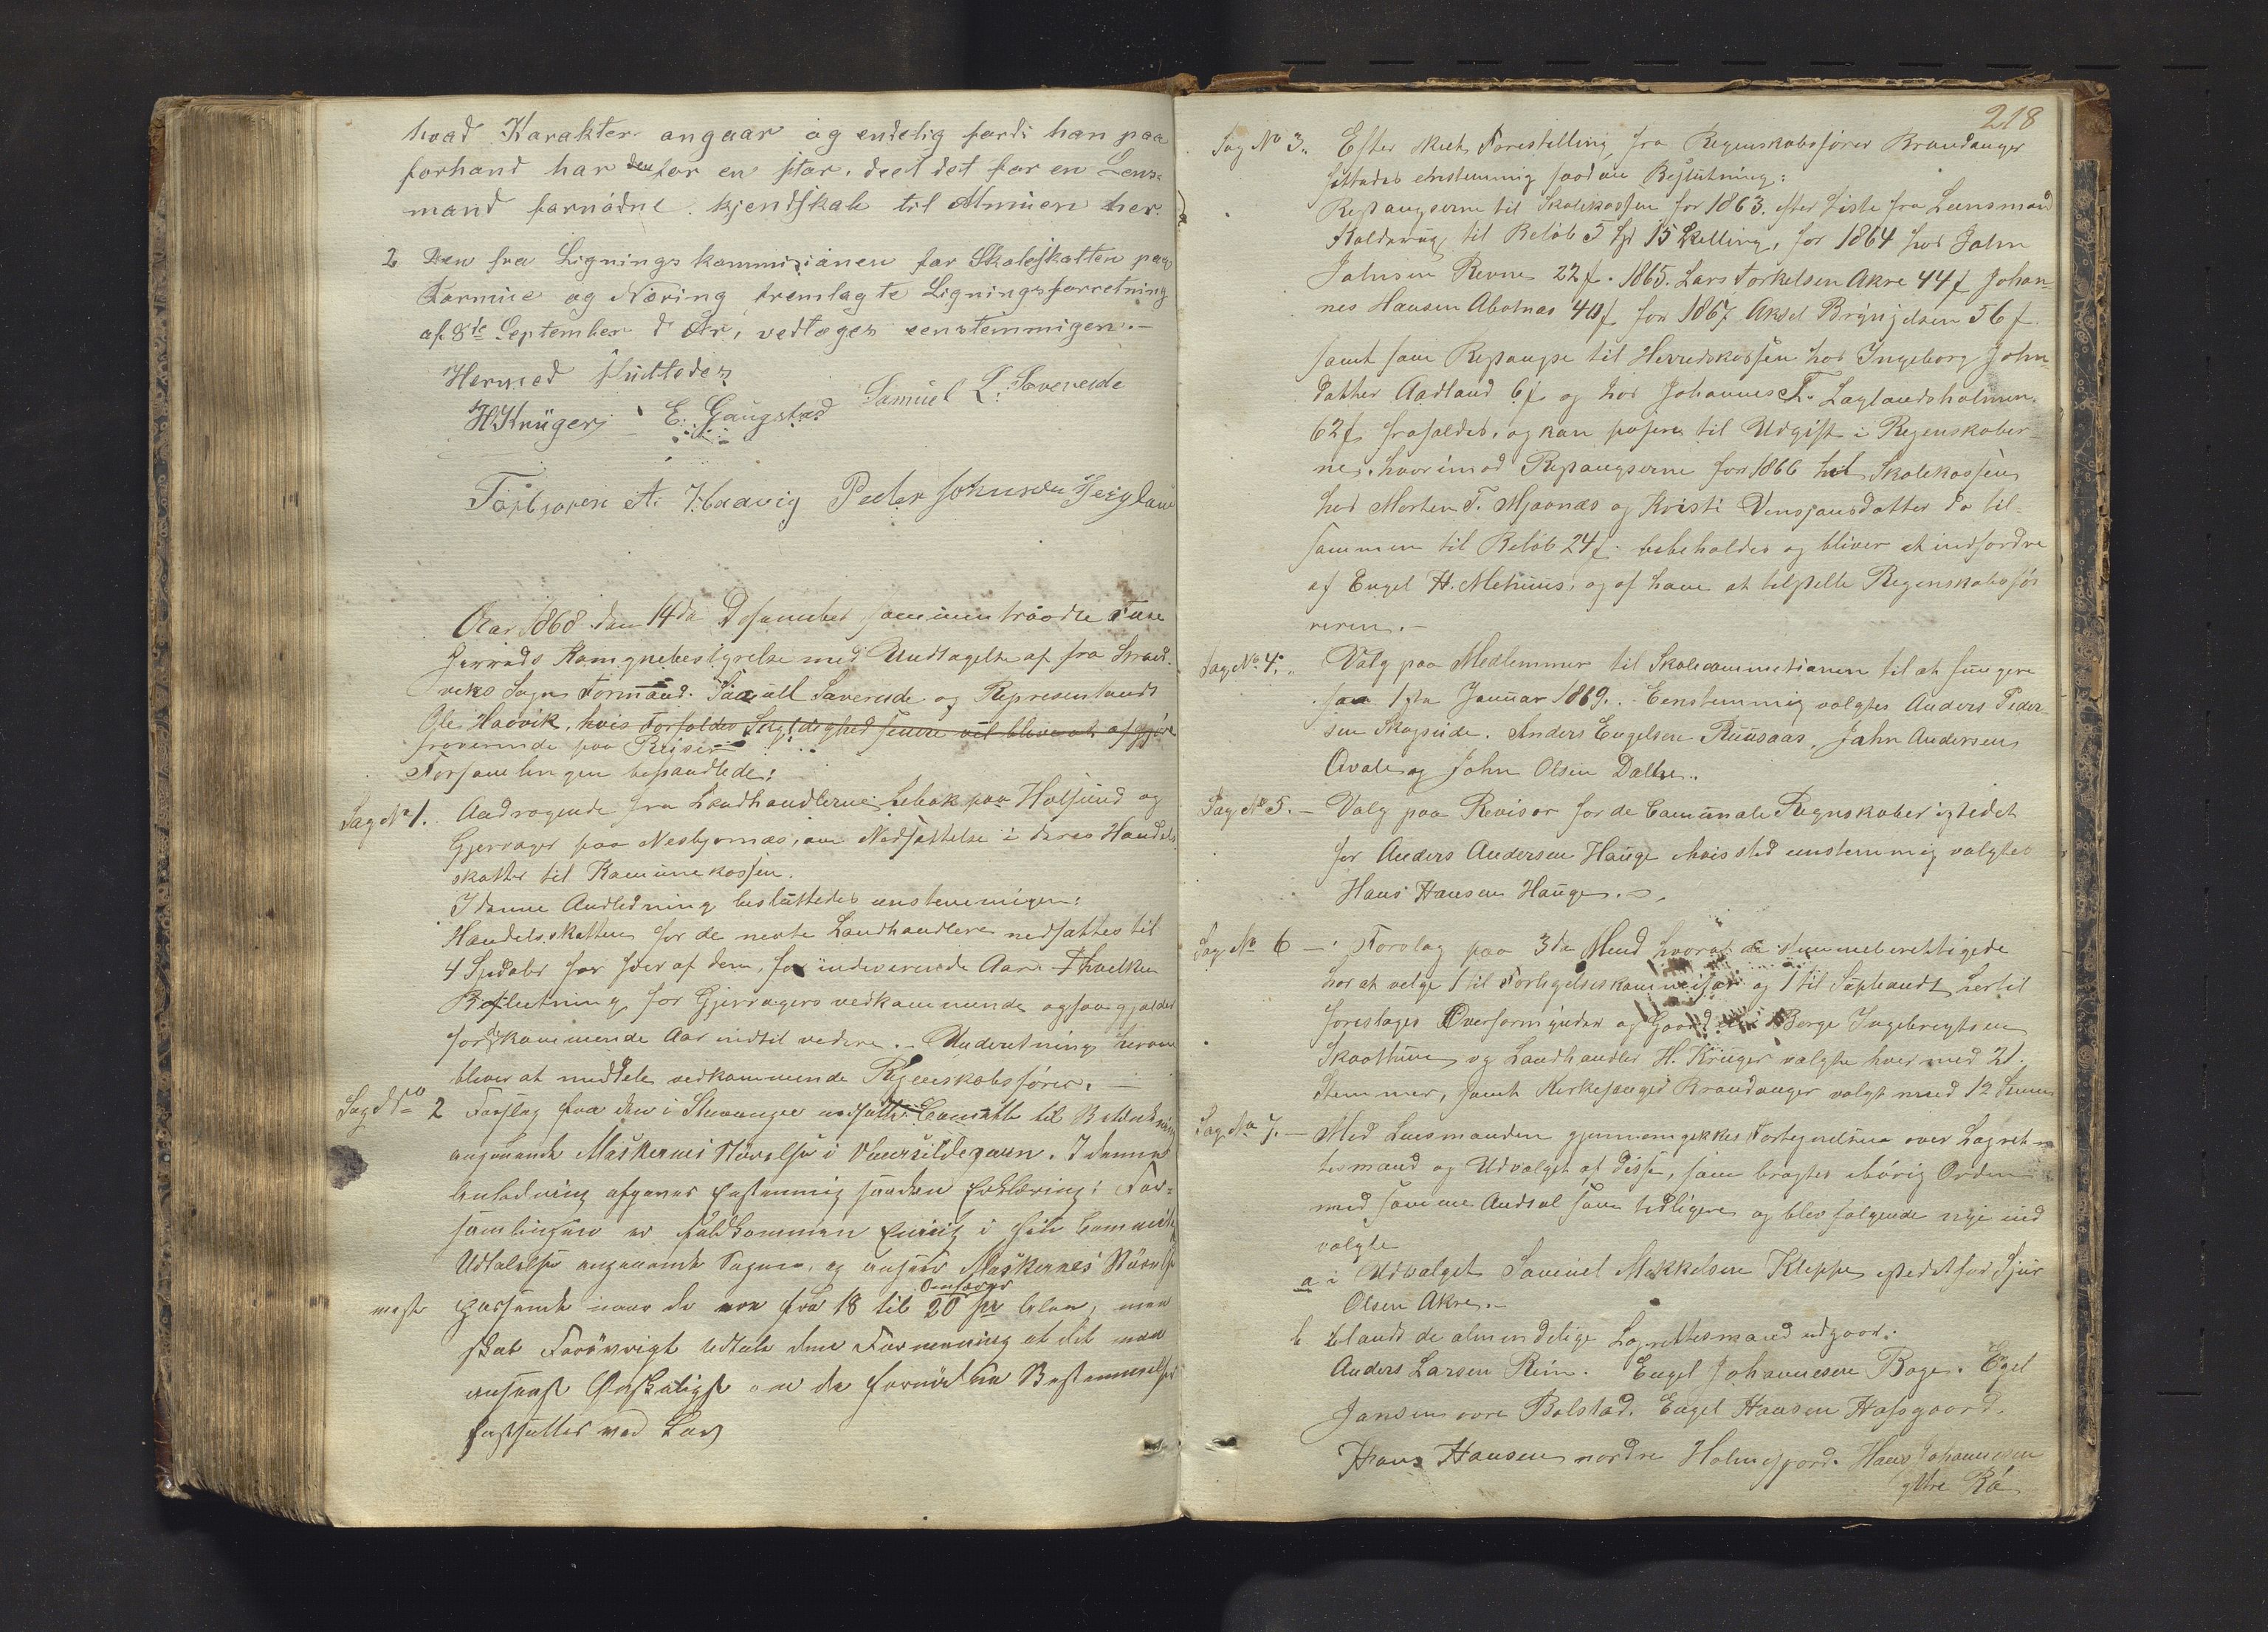 hvad Karakter angaar og endelig fordi han paa
forhand har den for en stor deel det for en Lens-
mand fornødne kjendskab til Almuen her.
2 Den fra Ligningskommisionen for Skoleskatten paa
Formue og Næring fremlagte Ligningsforretning
af 8de September d Aar, vedtages eenstemmigen.-
Hermed sluttedes
H Krüger E. Gaugstad Samuel L. Søvereide
Torbjøren A. Haavig Peder Johnsen Teigland
Aar 1868 den 14da Desember sammentraadte Fuse
Herreds Komunebestyrelse med Undtagelse af fra Strand-
veks Sogn Formand Samuel Søvereide og Representandt
Ole Haavik, hvis Forfalds Gyldighed senere vil blive at afgjøre
fraverende paa Reiser
Forsamlingen behandlede:
Sag No 1. Andragende fra Landhandlerne Lebak paa Holsund og
Gjerrager paa Nesbjørnæs, om Nedsættelse i deres Handels
skatter til Kamunekassen.
I denne Andledning besluttedes eenstemmigen:
Handelsskatten for de nevte Landhandlere nedsattes til
4 Spdaler for hver af dem, for indeverende Aar. Ihvelken
Beslutning for Gjerragers vedkammende ogsaa gjælder
for de kammende Aar indtil vedere. - Underetning herom
bliver at meddele vedkammende Regenskabsfører. -
Sag No 2 Forslag fra den i Stavanger nedsatte Comitte til Betænkning
angaaende Maskernes Størrelse i Vaarsildegarn. I denne
Anledning afgaves Enstemmig saadan Erklæring: For-
samlingen er fuldkommen Enig i hele Committe
Udtalelse angaaende Sagen, og anseer Maskernes Størrelse
mest passende naar de ere fra 18 til 20 Omfarer pr Alen, men
skal Forøvrigt Udtale den Formening at det maa
ansees Ønskeligst om de fornødne Bestemmelser
fastsættes ved Lov
218
Sag No 3. Efter skeet Forestilling fra Regenskabsfører Brandanger
fattedes enstemmig saadan Beslutning:
Restangserne til Skolekassen for 1863 efter Liste fra Lensmand
Koldevig, til Beløb 5 Spd 15 Skelling, for 1864 hos John
Johnsen Revne 22 f. 1865. Lars Torkelsen Akre 44 f Johan-
nes Hansen Abotnæs 40 f for 1867 Aksel Brynjelsen 56 f
samt som Restangse til Herredskassen hos Ingeborg John-
datter Aadland 6 f og hos Johannes T. Laglandsholmen.
62 f frafaldes, og kan paføres til Udgift i Regenskaber-
ne. hvorimod Restangserne for 1866 til Skolekassen
hos Morten T. Mjaanæs og Kristi Vensjansdatter do til-
sammen til Beløb 24 f. bebeholdes og bliver at indfordre
af Engel H. Mehuus, og af ham at tilstelle Regenskabsfø
reren. -
Sag No 4. Valg paa Medlemmer til Skolecommetionen til at fungere
fra 1ste Januar 1869. Eenstemmig valgtes Anders Peder-
sen Skogseide. Anders Engelsen Ruusaas, John Andersen
Qvale og John Olsen Dalbø..
Sag No 5. - Valg paa Revisor for de Camunale Regnskaber istedet
for Anders Andersen Hauge hvis sted enstemmig valgtes
Hans Hansen Hauge.
Sag No 6 - Forslag paa 3de Mend hvoraf de stemmeberettigede
har at velge 1 til Forligelseskommissær og 1 til Supleandt hertil
foreslages Overformynder og Gaard Berge Ingebregtsen
Skaathun og Landhandler H. Krüger valgte hver med 21.
Stemmer, samt Kirkesanger Brandanger valgt med 12
Stemmer
Sag No 7. - Med Lensmanden gjennemgikkes Fortegnelsen over Lagret-
tesmænd og Udvalget af disse, som bragtes i hørig Orden
med samme Andtal som tidligere og blev følgende nye ind
valgte
a i Udvalget Samuel Mekkelsen Kleppe istedet for Sjur
Olsen Akre. -
b blandt de almendelige Lagrettesmænd udgaar:
Anders Larsen Rein. Engel Johannesen Boge. Egel
Jansen øvre Bolstad. Engel Hansen Hafsgaard.
Hans Hansen nordre Holmefjord. Hans Johannesen
yttre Rø